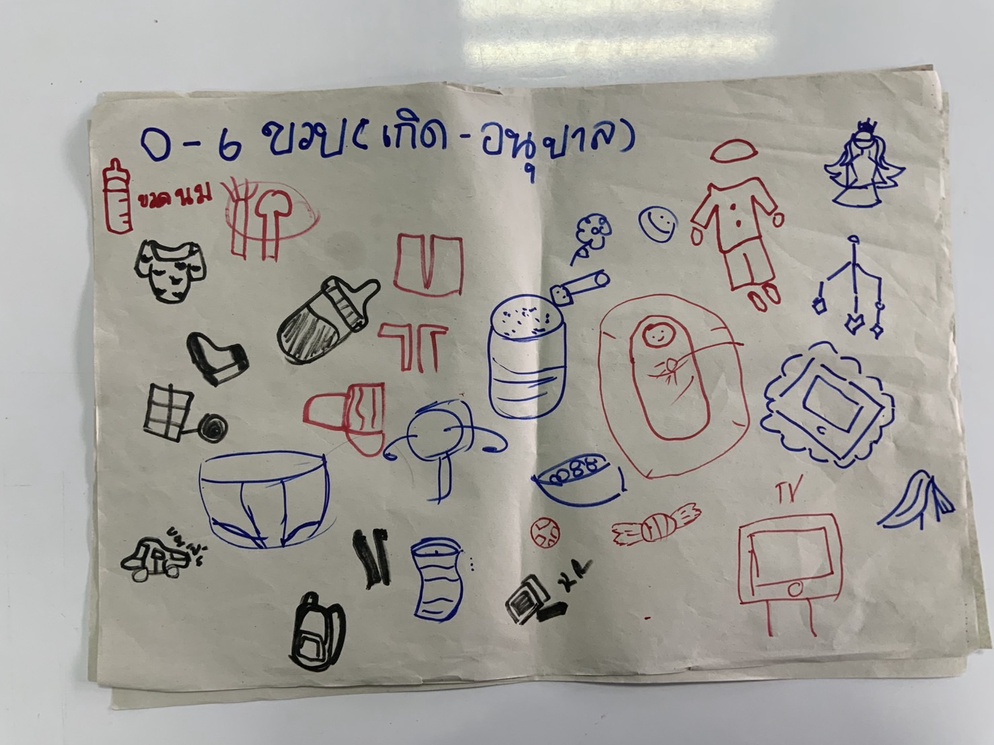 0-6 ขวบ (เกิด - อนุบาล)
ขวดนม
TV